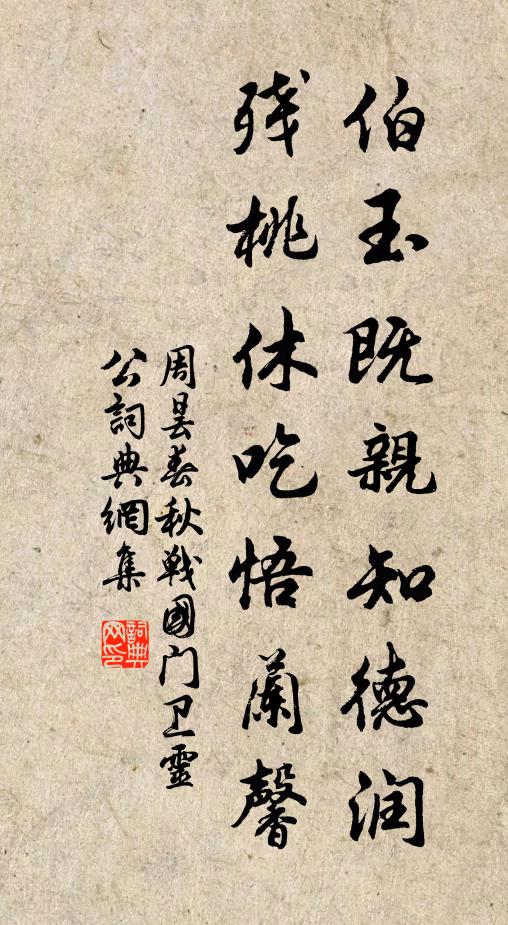 伯玉既親知德润
残桃休吃悟蘭馨
周昙春秋戦國门卫靈
公詞典網集
詞典网印